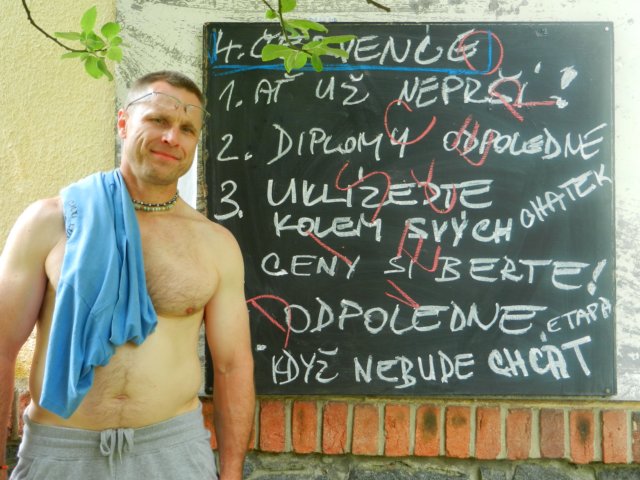 4. ČERVENCE
1. AŤ UŽ NEPRŠÍ!
2. DIPLOMY ODPOLEDNE
3. UKLÍZEJTE
KOLEM SVÝCH CHATEK
CENY SI BERTE!
ODPOLEDNE ETAPA
KDYŽ NEBUDE CHCÁT